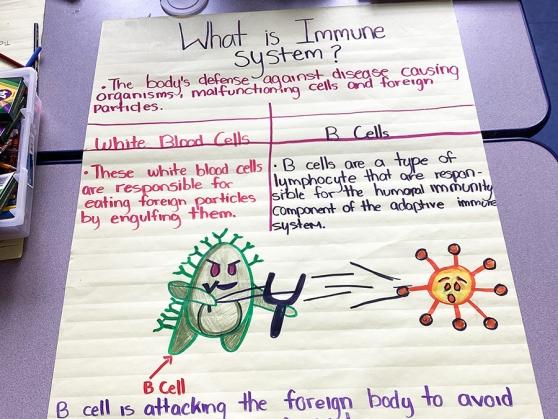 What is Immune
system?
• The body's defense against disease causing
organisms, malfunctioning cells and foreign
particles.
White Blood Cells
B Cells
• These white blood cells
are responsible for
eating foreign particles
by engulfing them.
• B cells are a type of
lymphocyte that are respon-
sible for the humoral immunity
component of the adaptive immune
system.
B Cell
B cell is attacking the foreign body to avoid